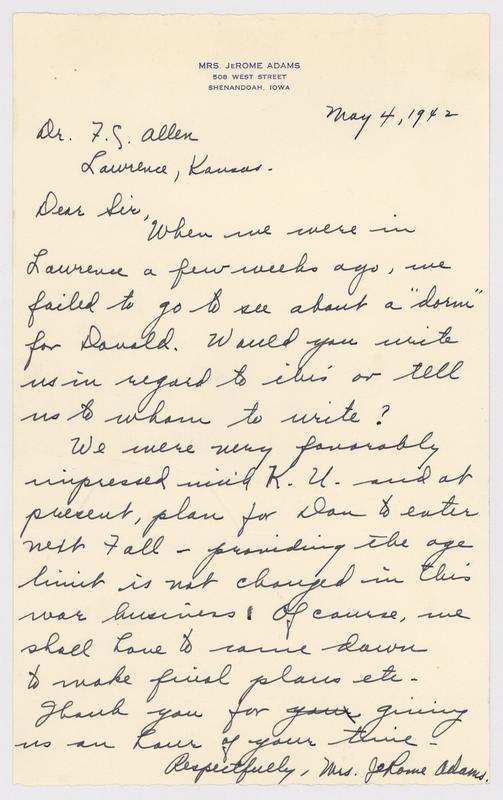 MRS. JEROME ADAMS
508 WEST STREET
SHENANDOAH, IOWA
May 4, 1942
Dr. F. C. Allen
Lawrence, Kansas.
Dear Sir,
When we were in
Lawrence a few weeks ago, we
failed to go to see about a "dorm"
for Donald. Would you write
us in regard to this or tell
us to whom to write?
We were very favorably
impressed with K. U. and at
present, plan for Don to enter
next Fall - providing the age
limit is not changed in this
war business! Of course, we
shall have to come down
to make final plans etc.
Thank you for your giving
us an hour of your time -
Respectfully, Mrs. JeRome Adams.